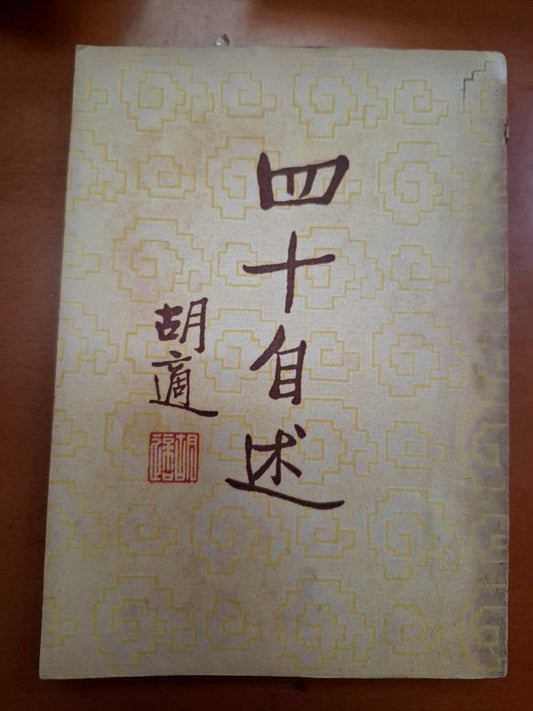 四十自述
胡適
胡適